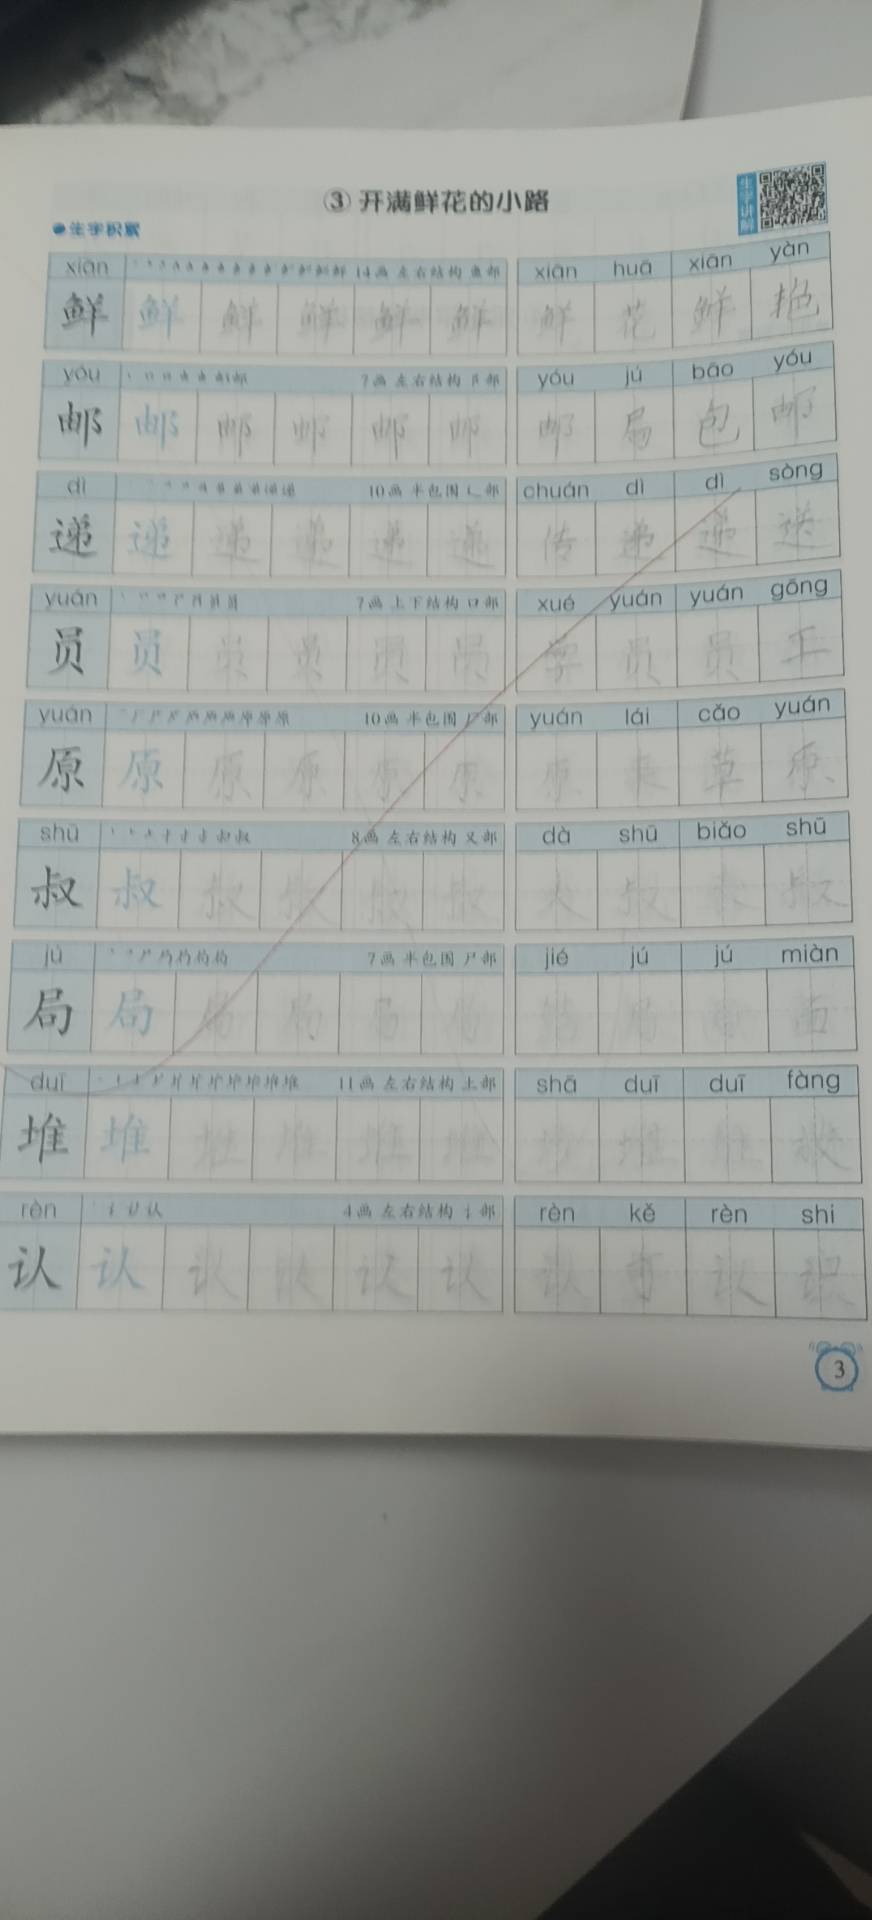 ③ 开满鲜花的小路
生字讲解
生字积累
xiān 14画 左右结构 鱼部 xiān huā xiān yàn
鲜 鲜 鲜 鲜 鲜 鲜 鲜 花 鲜 艳
yóu 7画 左右结构 阝部 yóu jú bāo yóu
邮 邮 邮 邮 邮 邮 邮 局 包 邮
dì 10画 半包围 辶部 chuán dì dì sòng
递 递 递 递 递 递 传 递 递 送
yuán 7画 上下结构 口部 xué yuán yuán gōng
员 员 员 员 员 员 学 员 员 工
yuán 10画 半包围 厂部 yuán lái cǎo yuán
原 原 原 原 原 原 原 来 草 原
shū 8画 左右结构 又部 dà shū biǎo shū
叔 叔 叔 叔 叔 叔 大 叔 表 叔
jú 7画 半包围 尸部 jié jú jú miàn
局 局 局 局 局 局 结 局 局 面
duī 11画 左右结构 土部 shā duī duī fàng
堆 堆 堆 堆 堆 堆 沙 堆 堆 放
rèn 4画 左右结构 讠部 rèn kě rèn shi
认 认 认 认 认 认 认 可 认 识
3